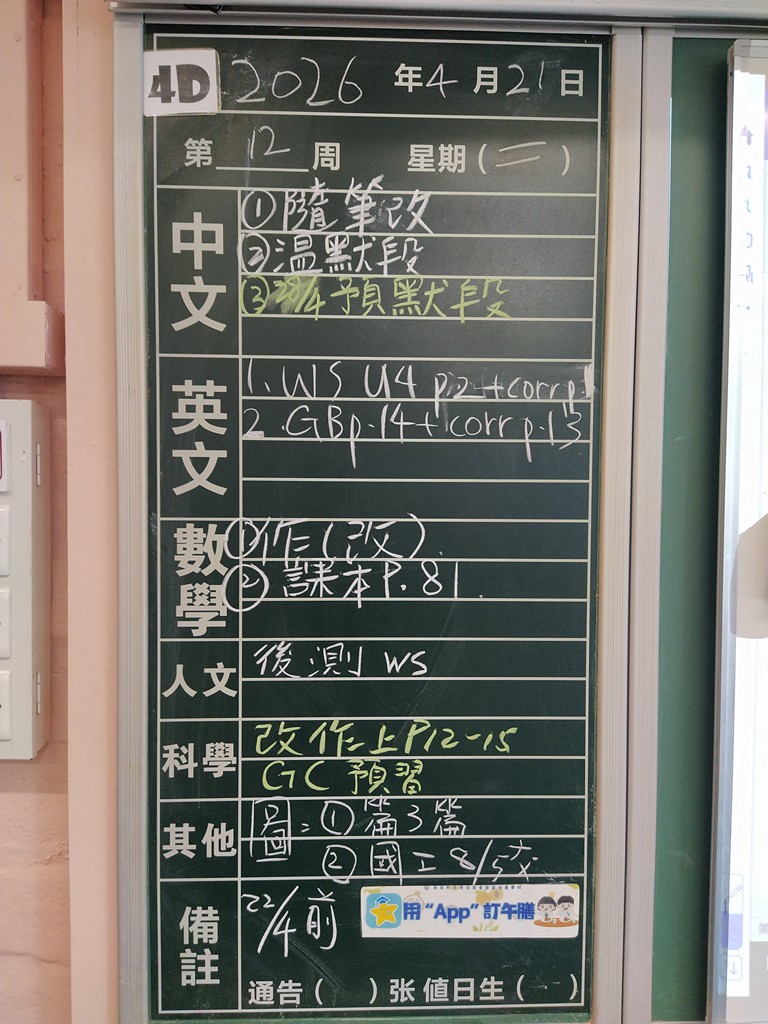 4D 2026 年 4 月 21 日
第 12 周 星期 ( 二 )
中文
① 隨筆改
② 溫默段
③ 28/4 預默段
英文
1. WS U4 p.2 + corr p.1
2. GB p.14 + corr p.13
數學
① 作(改)
② 課本 P. 81
人文
後測 WS
科學
改作上 P12-15
GC 預習
其他
圖: ① 篇3篇
② 國工 8/5交
備註
22/4前
用 “App” 訂午膳
通告 ( ) 张 值日生 ( 一 )